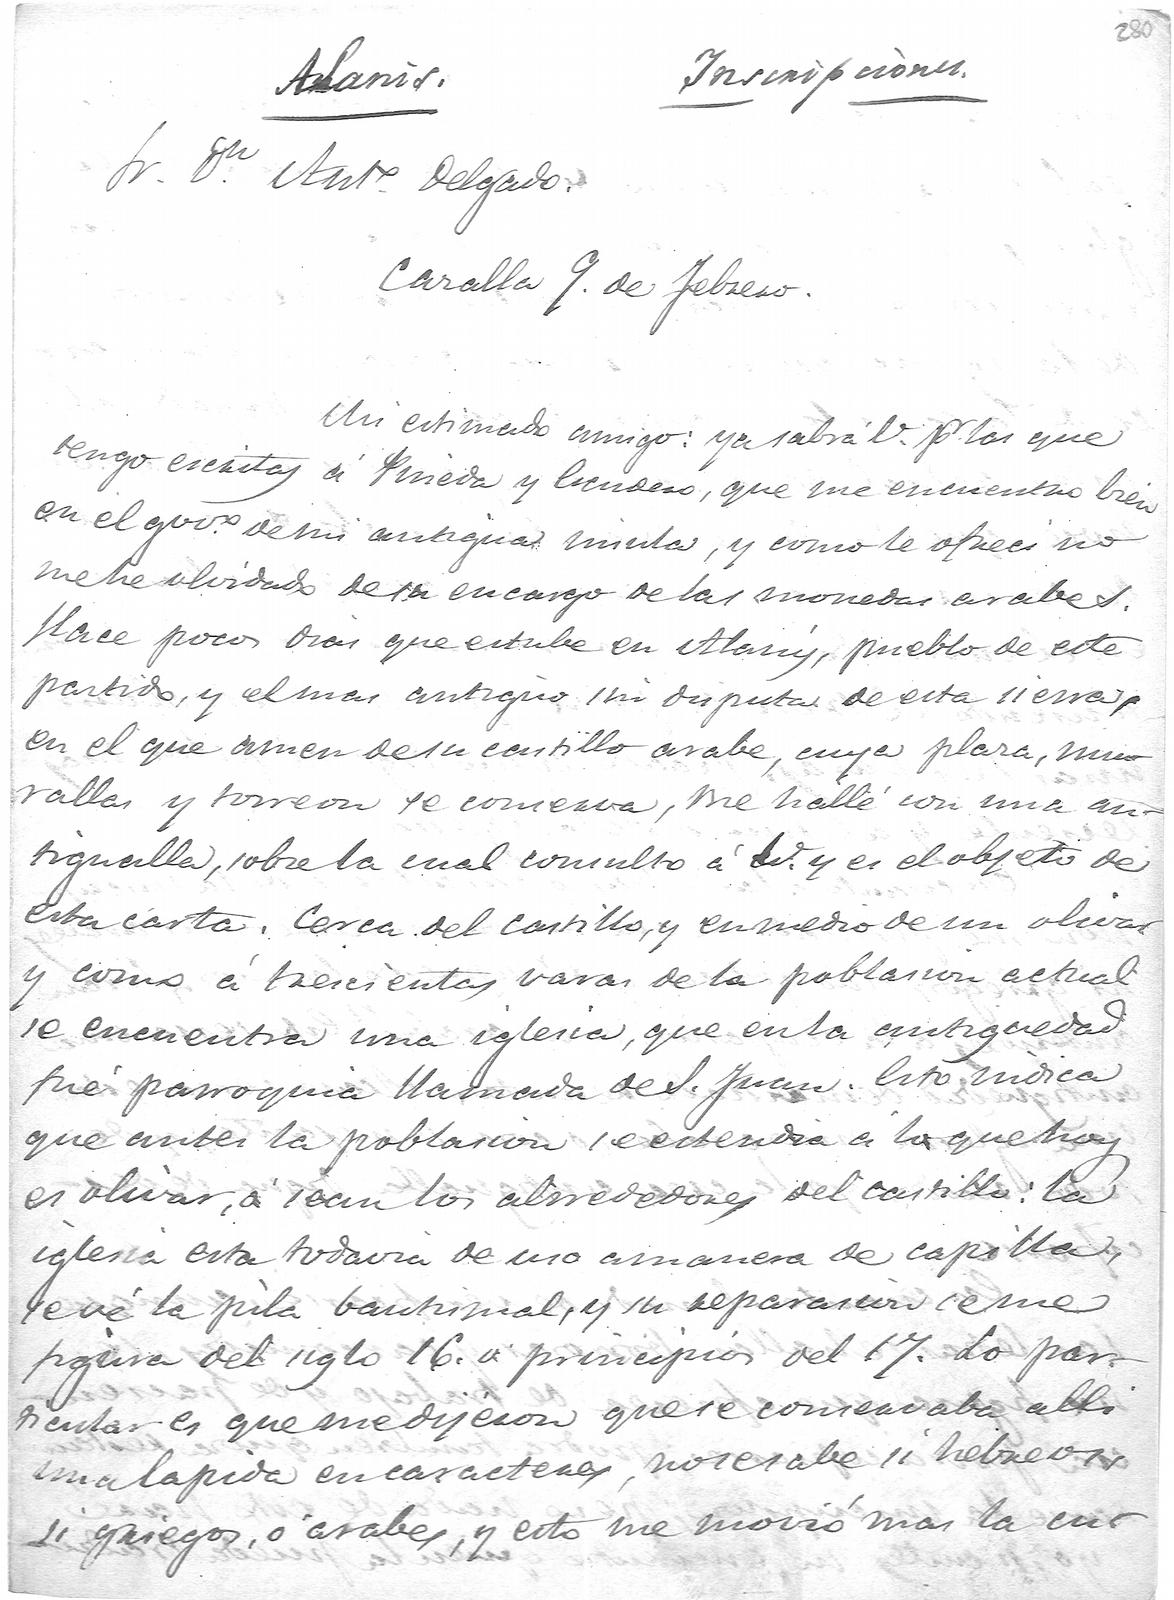 280
Alanis. Inscripciones.
Sr. Dn. Anto. Delgado.
Cazalla 9. de Febrero.
Mi estimado amigo: ya sabrá V. pr. las que
tengo escritas á Pineda y Escudero, que me encuentro bien
en el govo. de mi antigua ínsula, y como le ofreci no
me he olvidado de su encargo de las monedas arabes.
Hace pocos dias que estube en Alanis, pueblo de este
partido, y el mas antiguo sin disputa de esta sierra,
en el que amen de su castillo arabe, cuya plaza, mu-
rallas y torreon se conserva, me hallé con una an-
tigualla, sobre la cual consulto á V. y es el objeto de
esta carta. Cerca del castillo, y en medio de un olivar
y como á trescientas varas de la poblacion actual
se encuentra una iglesia, que en la antiguedad
fué parroquia llamada de S. Juan. Esto indica
que antes la poblacion se estendia á lo que hoy
es olivar, ó sean los alrrededores del castillo: la
iglesia esta todavia de uso a manera de capilla,
se vé la pila bautismal, y su reparacion se me
figura del siglo 16. ó principios del 17. Lo par-
ticular es que me dijeron que se conservaba alli
una lapida en caracteres, no se sabe si hebreos
si griegos, ó arabes, y esto me movió mas la cur-